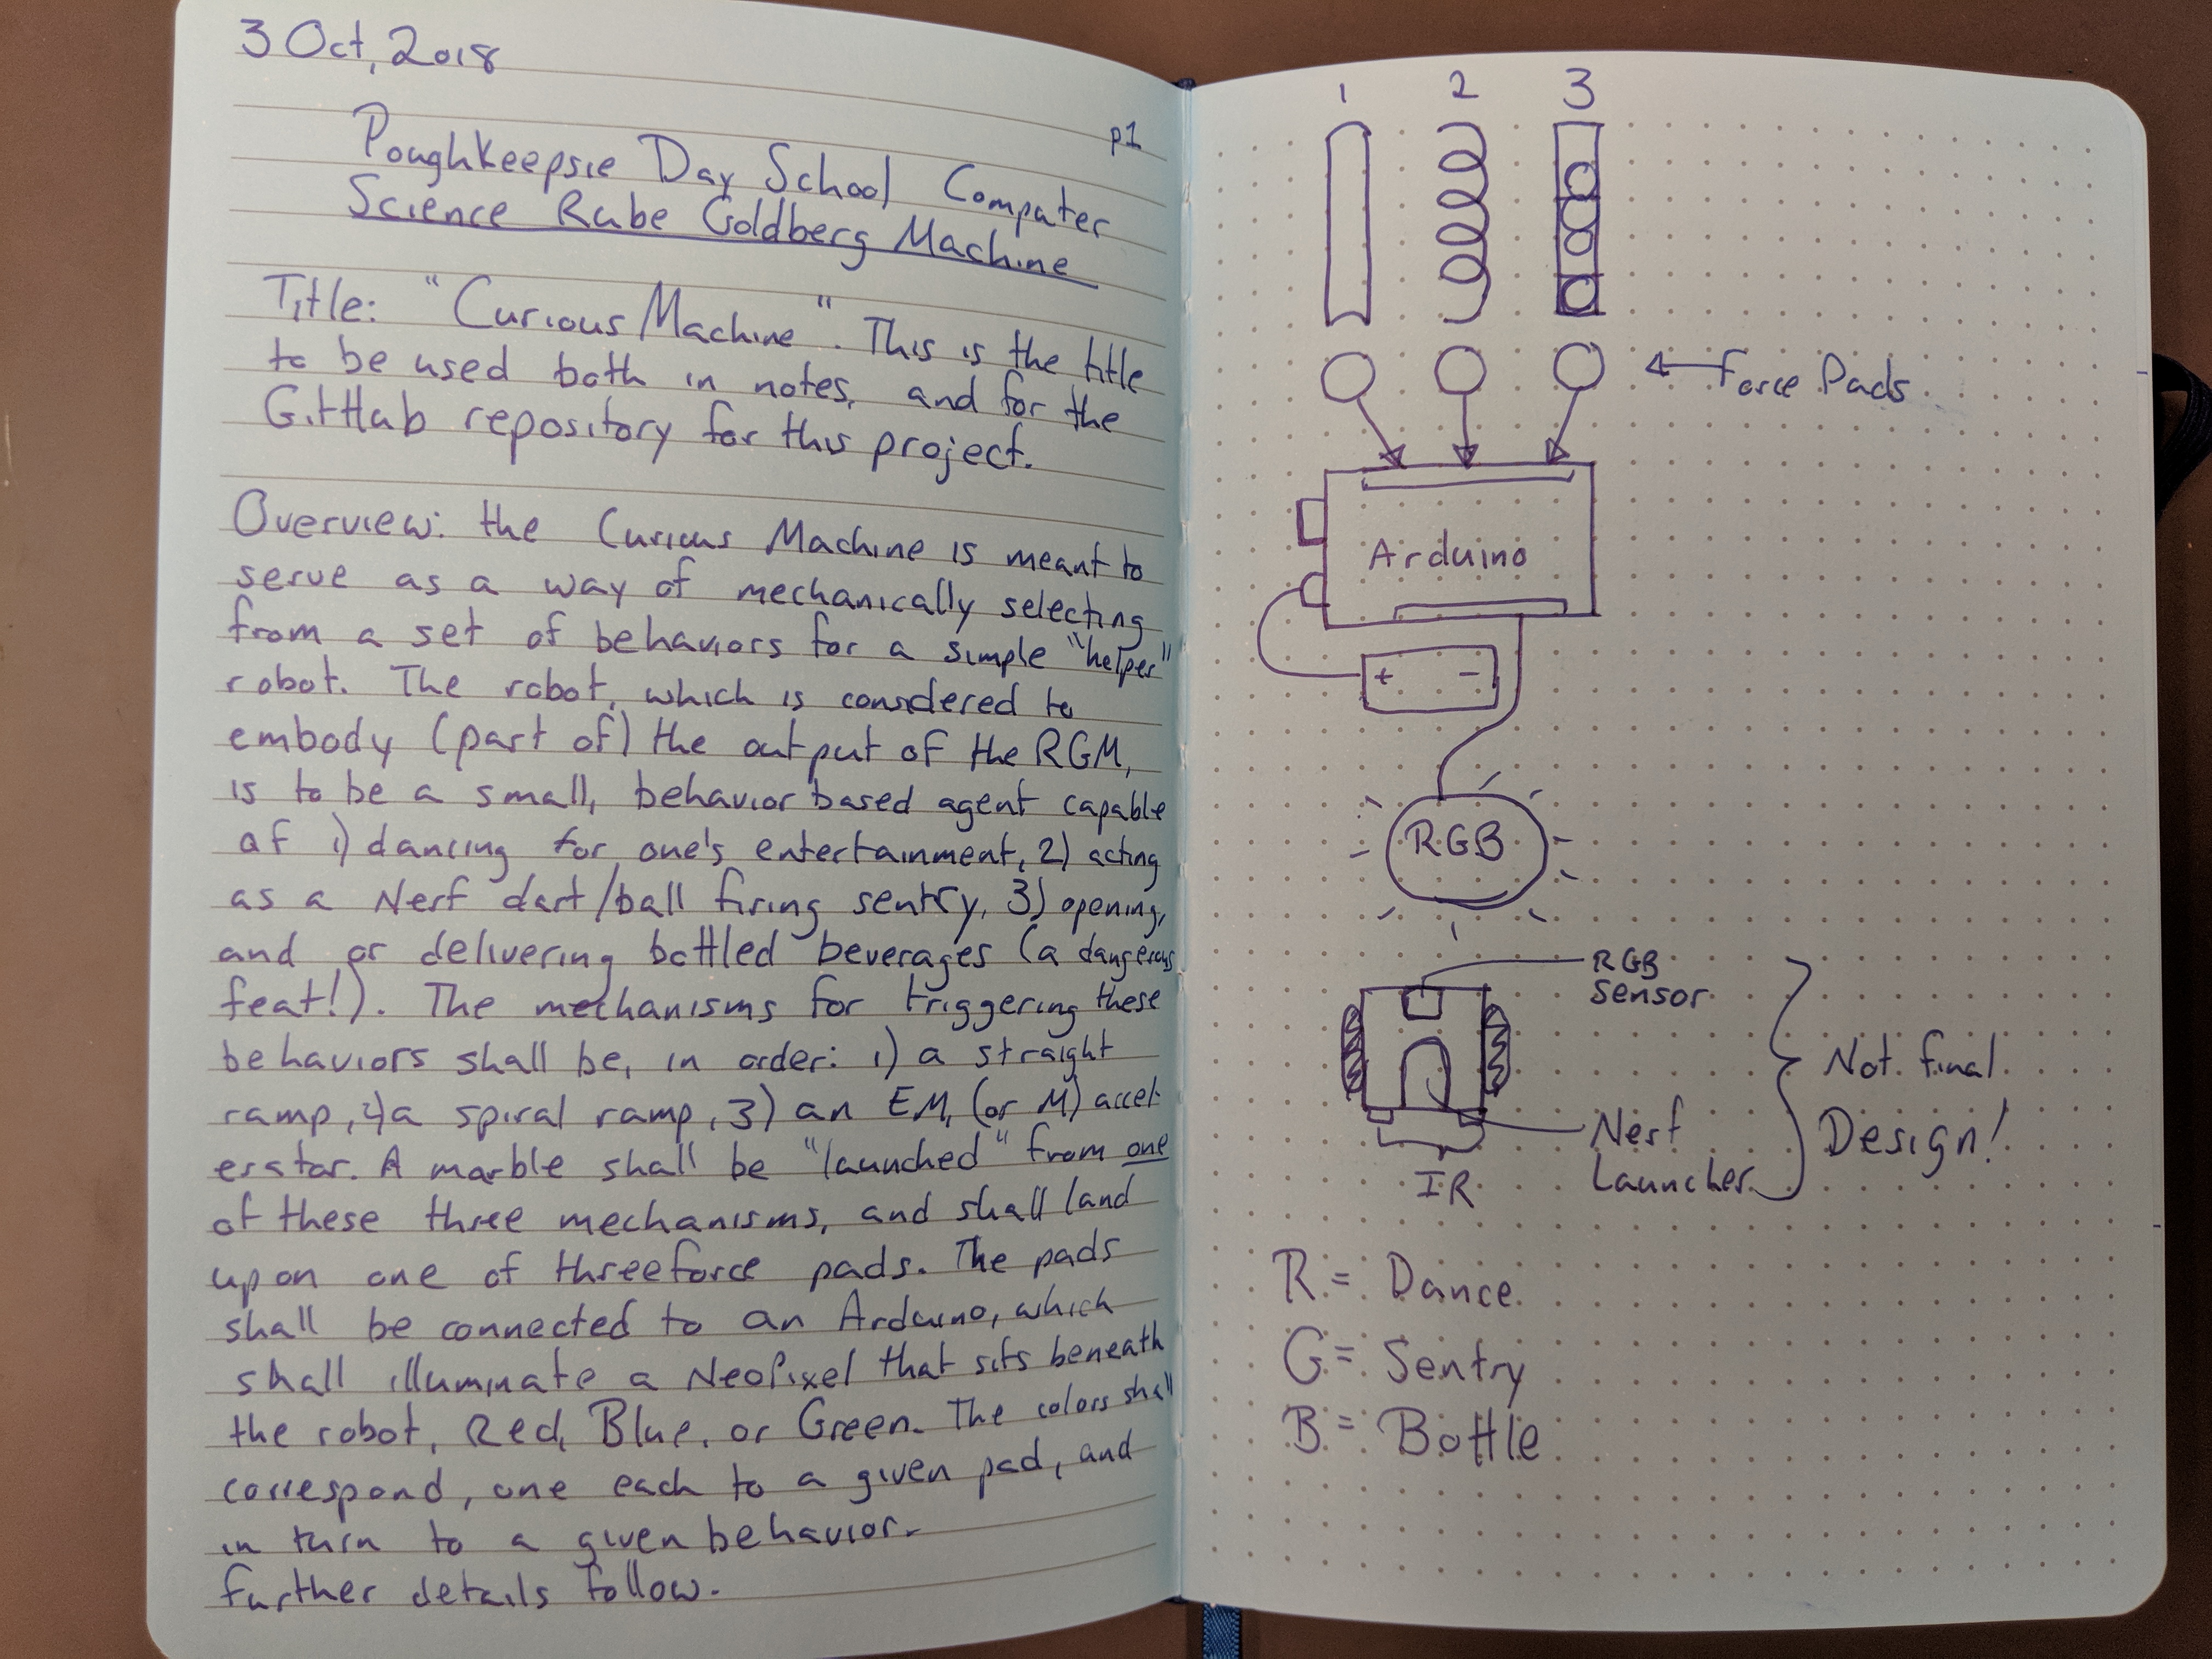 3 Oct, 2018
p1
Poughkeepsie Day School Computer
Science Rube Goldberg Machine
Title: "Curious Machine". This is the title
to be used both in notes, and for the
GitHub repository for this project.
Overview: the Curious Machine is meant to
serve as a way of mechanically selecting
from a set of behaviors for a simple "helper"
robot. The robot, which is considered to
embody (part of) the output of the RGM,
is to be a small, behavior based agent capable
of 1) dancing for one's entertainment, 2) acting
as a Nerf dart/ball firing sentry, 3) opening,
and or delivering bottled beverages (a dangerous
feat!). The mechanisms for triggering these
behaviors shall be, in order: 1) a straight
ramp, 2) a spiral ramp, 3) an EM, (or M) accel-
erator. A marble shall be "launched" from one
of these three mechanisms, and shall land
upon one of three force pads. The pads
shall be connected to an Arduino, which
shall illuminate a NeoPixel that sits beneath
the robot, Red, Blue, or Green. The colors shall
correspond, one each to a given pad, and
in turn to a given behavior.
further details follow.
1 2 3
Force Pads
Arduino
+ -
RGB
RGB
Sensor
Not final
Design!
Nerf
Launcher
IR
R = Dance
G = Sentry
B = Bottle